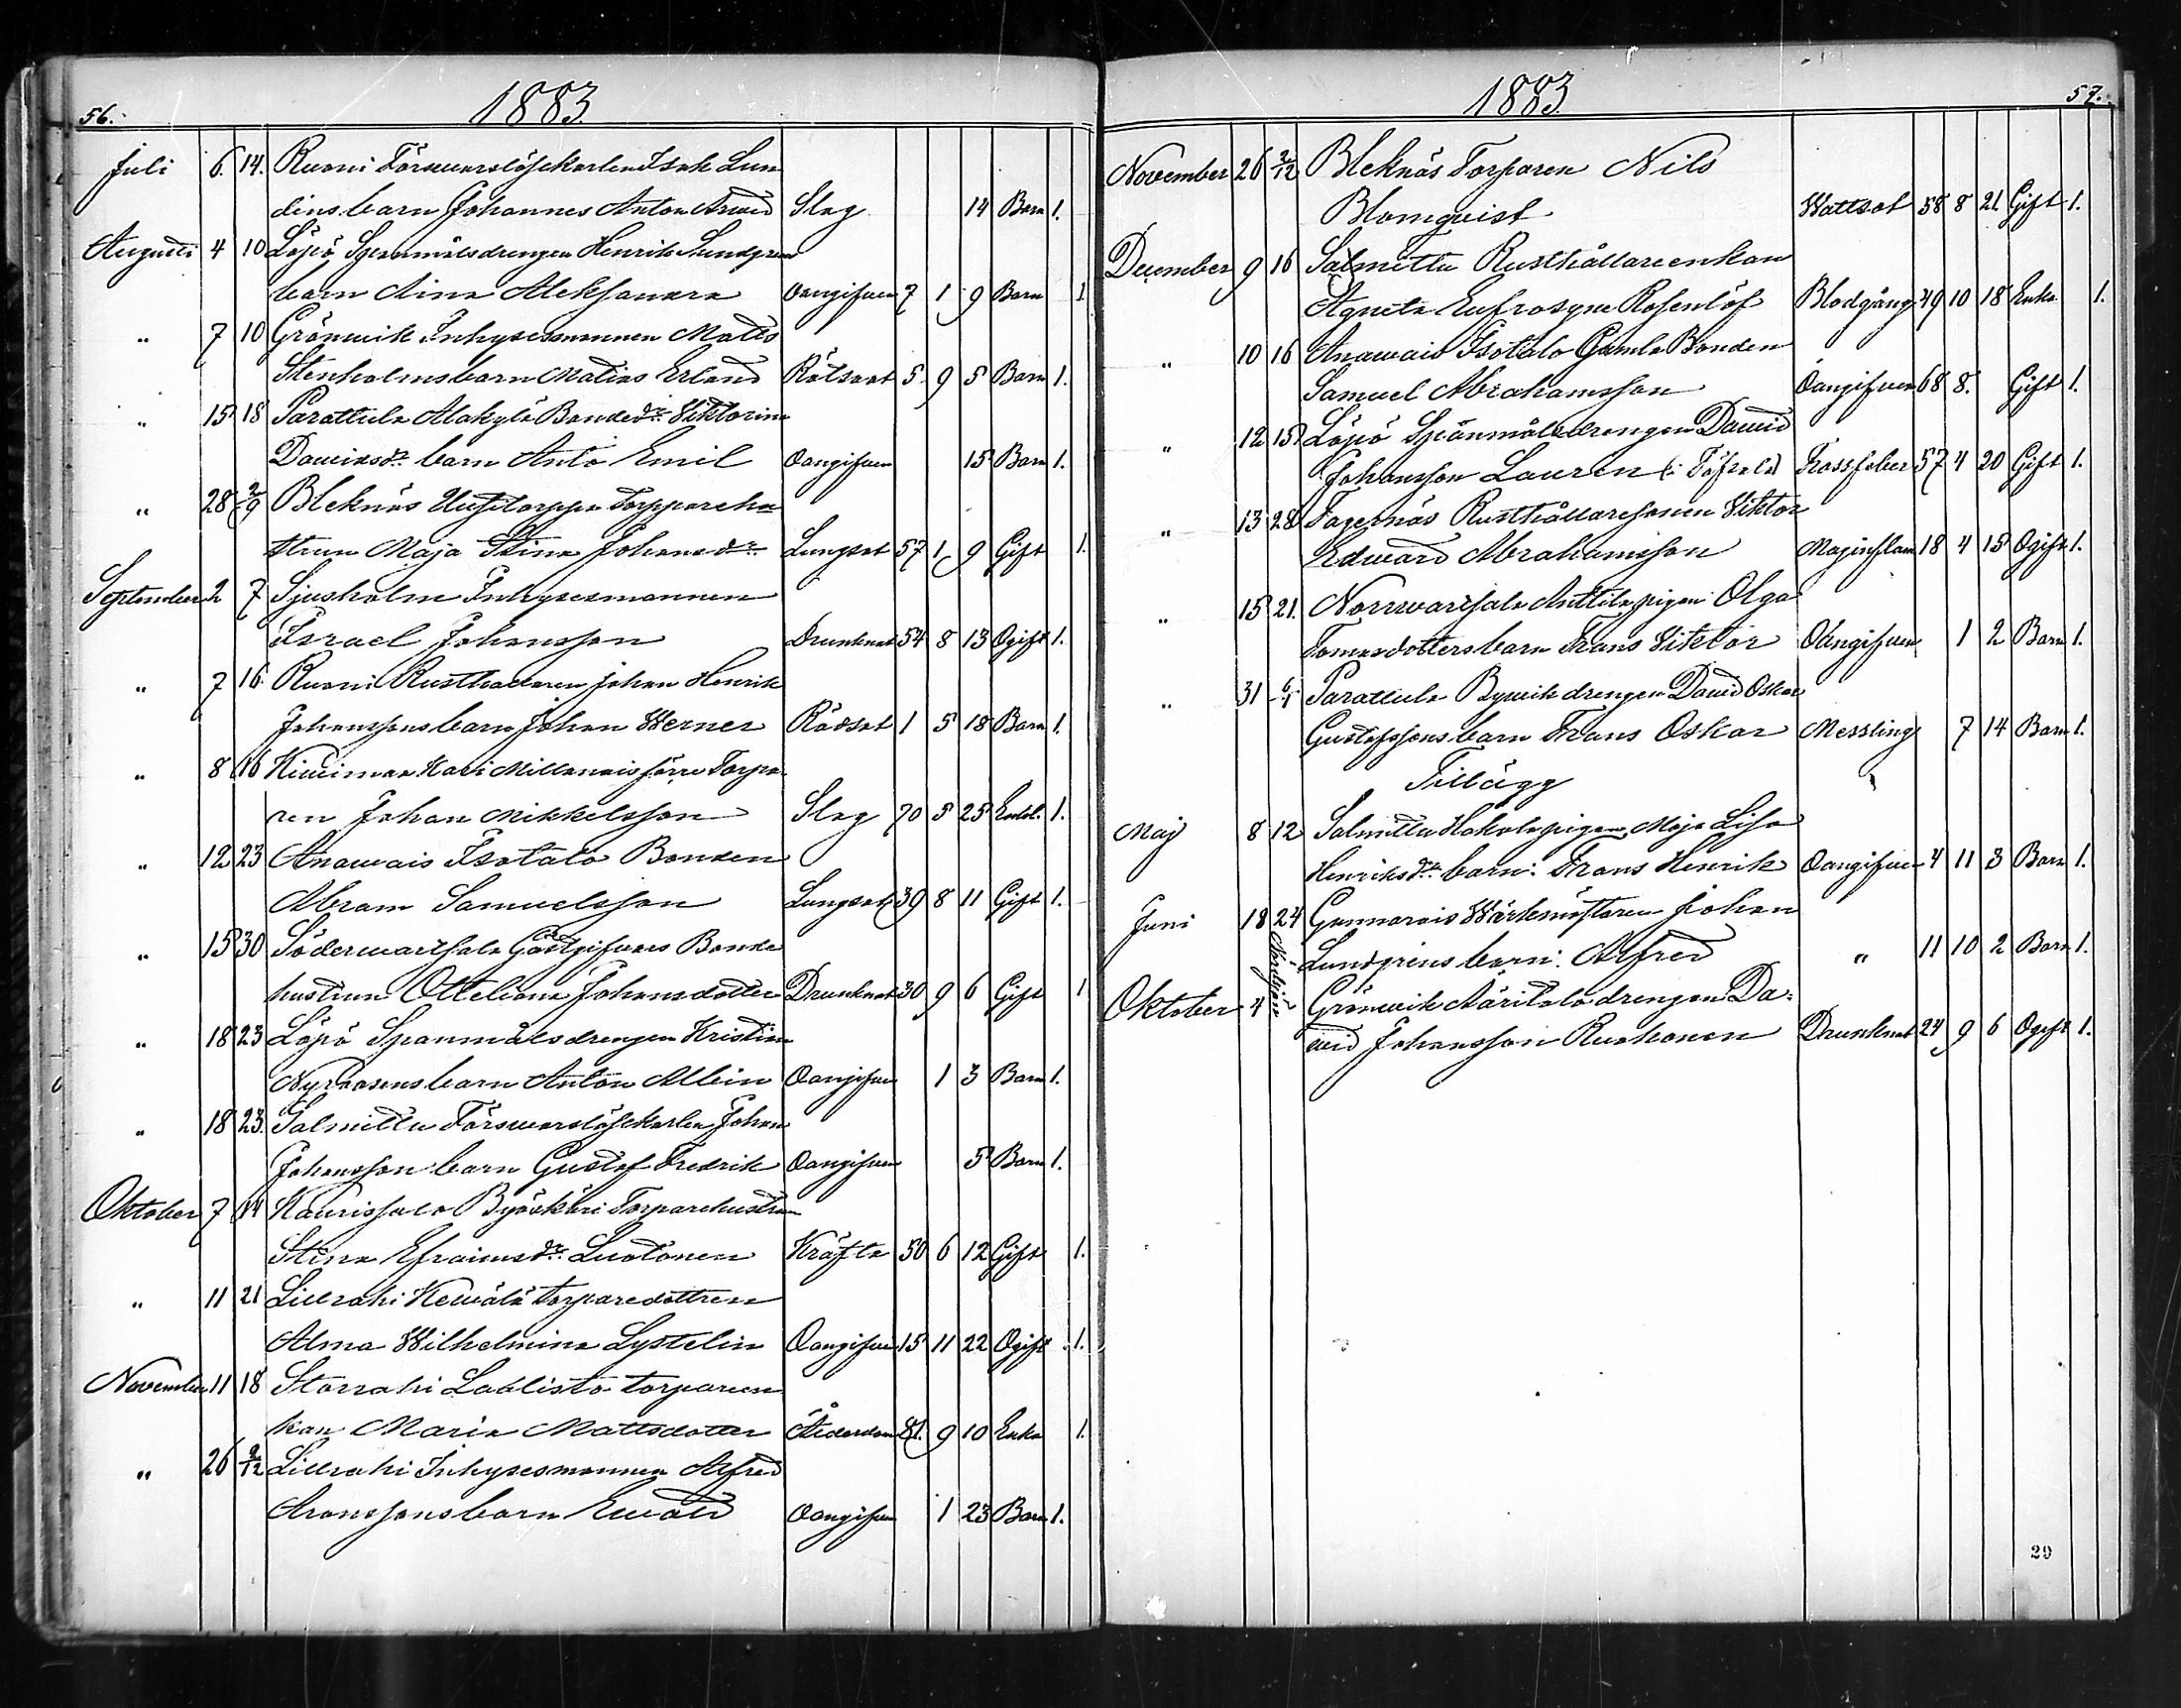 56. 1883.
Juli 6. 14. Ruoni Försvarslöse karlen Isak Lun
dins barn Johannes Anton Arvid Slag 14 Barn 1.
Augusti 4 10 Löpö Spanmålsdrengen Henrik Lundgrens
barn Aina Aleksandra Oangifven 7 1 9 Barn 1
" 7 10 Grönvik Inhysesmannen Matts
Stenholms barn Matias Erland Rötsoot 5 9 5 Barn 1.
" 15 18 Parattula Alakylä Bonded:r Viktorina
Davidsd:r barn Anto Emil Oangifven 15 Barn 1.
" 28 2/9 Bleknäs Uusitorppa Torpparehu
strun Maja Stina Johansd:r Lungsot 57 1 9 Gift 1.
September 2 7 Sjusholm Inhysesmannen
Israel Johansson Drunknat 54 8 13 Ogift 1.
" 7 16. Ruoni Rusthållaren Johan Henrik
Johanssons barn Johan Werner Rödsot 1 5 18 Barn 1.
" 8 16 Kari Torpa
ren Johan Mikkelsson Slag 70 5 25 Enkl. 1.
" 12 23 Anavais Isotalo Bonden
Abram Samuelsson Lungsot 39 8 11 Gift 1.
" 15 30 Södervartsala Gästgifvars Bonde
hustrun Otteliana Johansdotter Drunknat 30 9 6 Gift 1
" 18 23 Löpö Spanmålsdrengen Kristian
Nyroosens barn Anton Albin Oangifven 1 3 Barn 1.
" 18 23. Salmittu Försvarslöse karlen Johan
Johansson barn Gustaf Fredrik Oangifven 5 Barn 1.
Oktober 7 14 Haurissalo Byöskäri Torparehustrun
Stina Efraimsd:r Luotonen Kräfta 50 6 12 Gift 1.
" 11 21 Lillrahi Kevälä torparedottren
Alma Wilhelmina Lystelin Oangifven 15 11 22 Ogift 1.
November 11 18 Storrahi Laklisto torpareen
kan Maria Mattsdotter Ålderdom 81. 9 10 Enka 1.
" 26 2/12 Lillrahi Inhysesmannen Alfred
Aronssons barn Evald Oangifven 1 23 Barn 1.
1883. 57.
November 26 2/12 Bleknäs Torparen Nils
Blomqvist Wattsot 58 8 21 Gift 1.
December 9 16 Salmittu Rusthållareenkan
Agneta Eufrosyne Rosenlöf Blodgång 49 10 18 Enka 1.
" 10 16 Anavais Isotalo Gamla Bonden
Samuel Abrahamsson Oangifven 68 8. Gift 1.
" 12 15 Löpö Spanmålsdrengen David
Johansson Lauren (i Töfsala) Frossfeber 57 4 20 Gift 1.
" 13 28 Fagernäs Rusthållaresonen Viktor
Edward Abrahamsson Maginflam 18 4 15 Ogift 1.
" 15 21. Norrvartsala Anttila pigan Olga
Tomasdotters barn Frans Viktor Oangifven 1 2 Barn 1.
" 31 6/1 Parattula Byvik drengen David Oskar
Gustafssons barn Frans Oskar Messling 7 14 Barn 1.
Tillägg
Maj 8 12 Salmittu Hakola pigan Maja Lisa
Henriksd:r barn: Frans Henrik Oangifven 4 11 3 Barn 1.
Juni 18 24 Gunnarais Värkmästaren Johan
Lundgrens barn: Alfred " 11 10 2 Barn 1.
Oktober 4 Grönvik Ääritalo drengen Da=
vid Johansson Ruohonen Drunknat 24 9 6 Ogift 1.
29